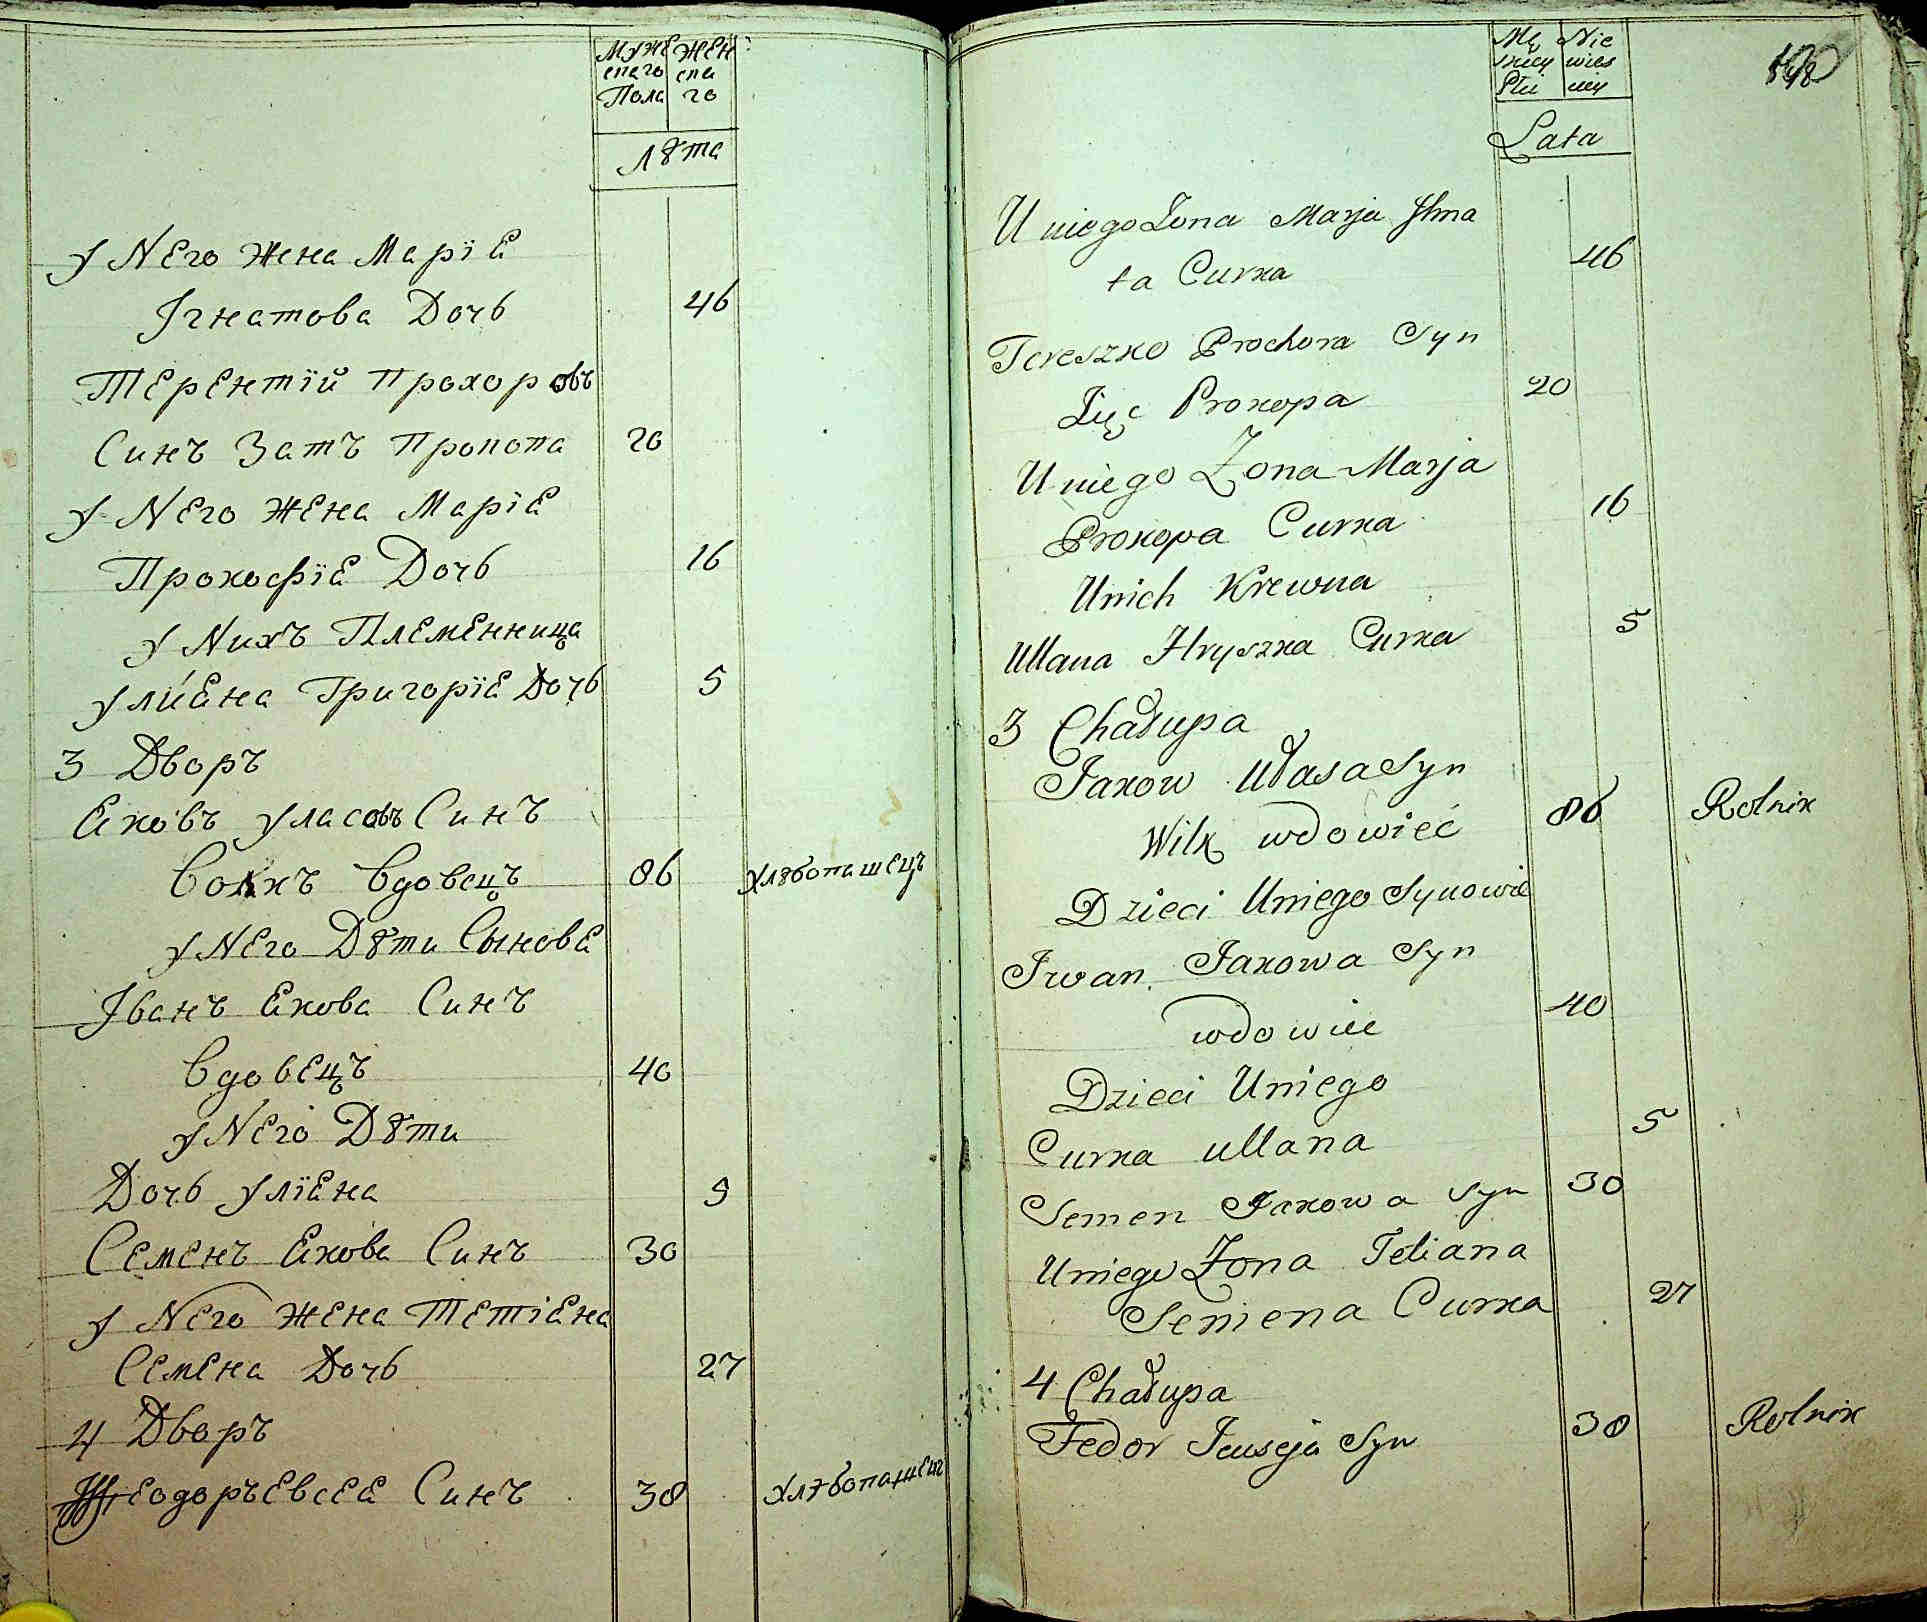 Муже Жен
скаго ска
Пола го
Лѣта
у Него жена Марїя
Ігнатова Дочь 46
Терентїй Прохоровъ
Синъ Затъ Прокопа 20
у Него жена Марїя
Прокофїя Дочь 16
у Нихъ Племенница
улияна Григорїя Дочь 5
3 Дворъ
Яковъ уласовъ Синъ
Вокъ Вдовецъ 86 хлѣбопашецъ
у Него Дѣти Сынова
Іванъ Якова Синъ
Вдовецъ 40
у Него Дѣти
Дочь улїяна 5
Семенъ Якова Синъ 30
у Него жена Тетіяна
Семена Дочь 27
4 Дворъ
Ѳеодоръ Евсея Синъ 38 хлѣбопашец
Mę Nie
skiey wies
Płci ciey
Lata
U niego Żona Marja Jhna
ta Curka 46
Tereszko Prochora Syn
Zięc Prokopa 20
U niego Żona Marja
Prokopa Curka 16
Unich Krewna
Ullana Hryszka Curka 5
3 Chałupa
Jakow Ułasa Syn
Wilk wdowieć 86 Rolnik
Dzieci Uniego Synowie
Iwan Jakowa Syn
wdowiec 40
Dzieci Uniego
Curka ullana 5
Semen Jakowa Syn 30
Uniego Żona Tetiana
Semena Curka 27
4 Chałupa
Fedor Jeuseja Syn 38 Rolnik